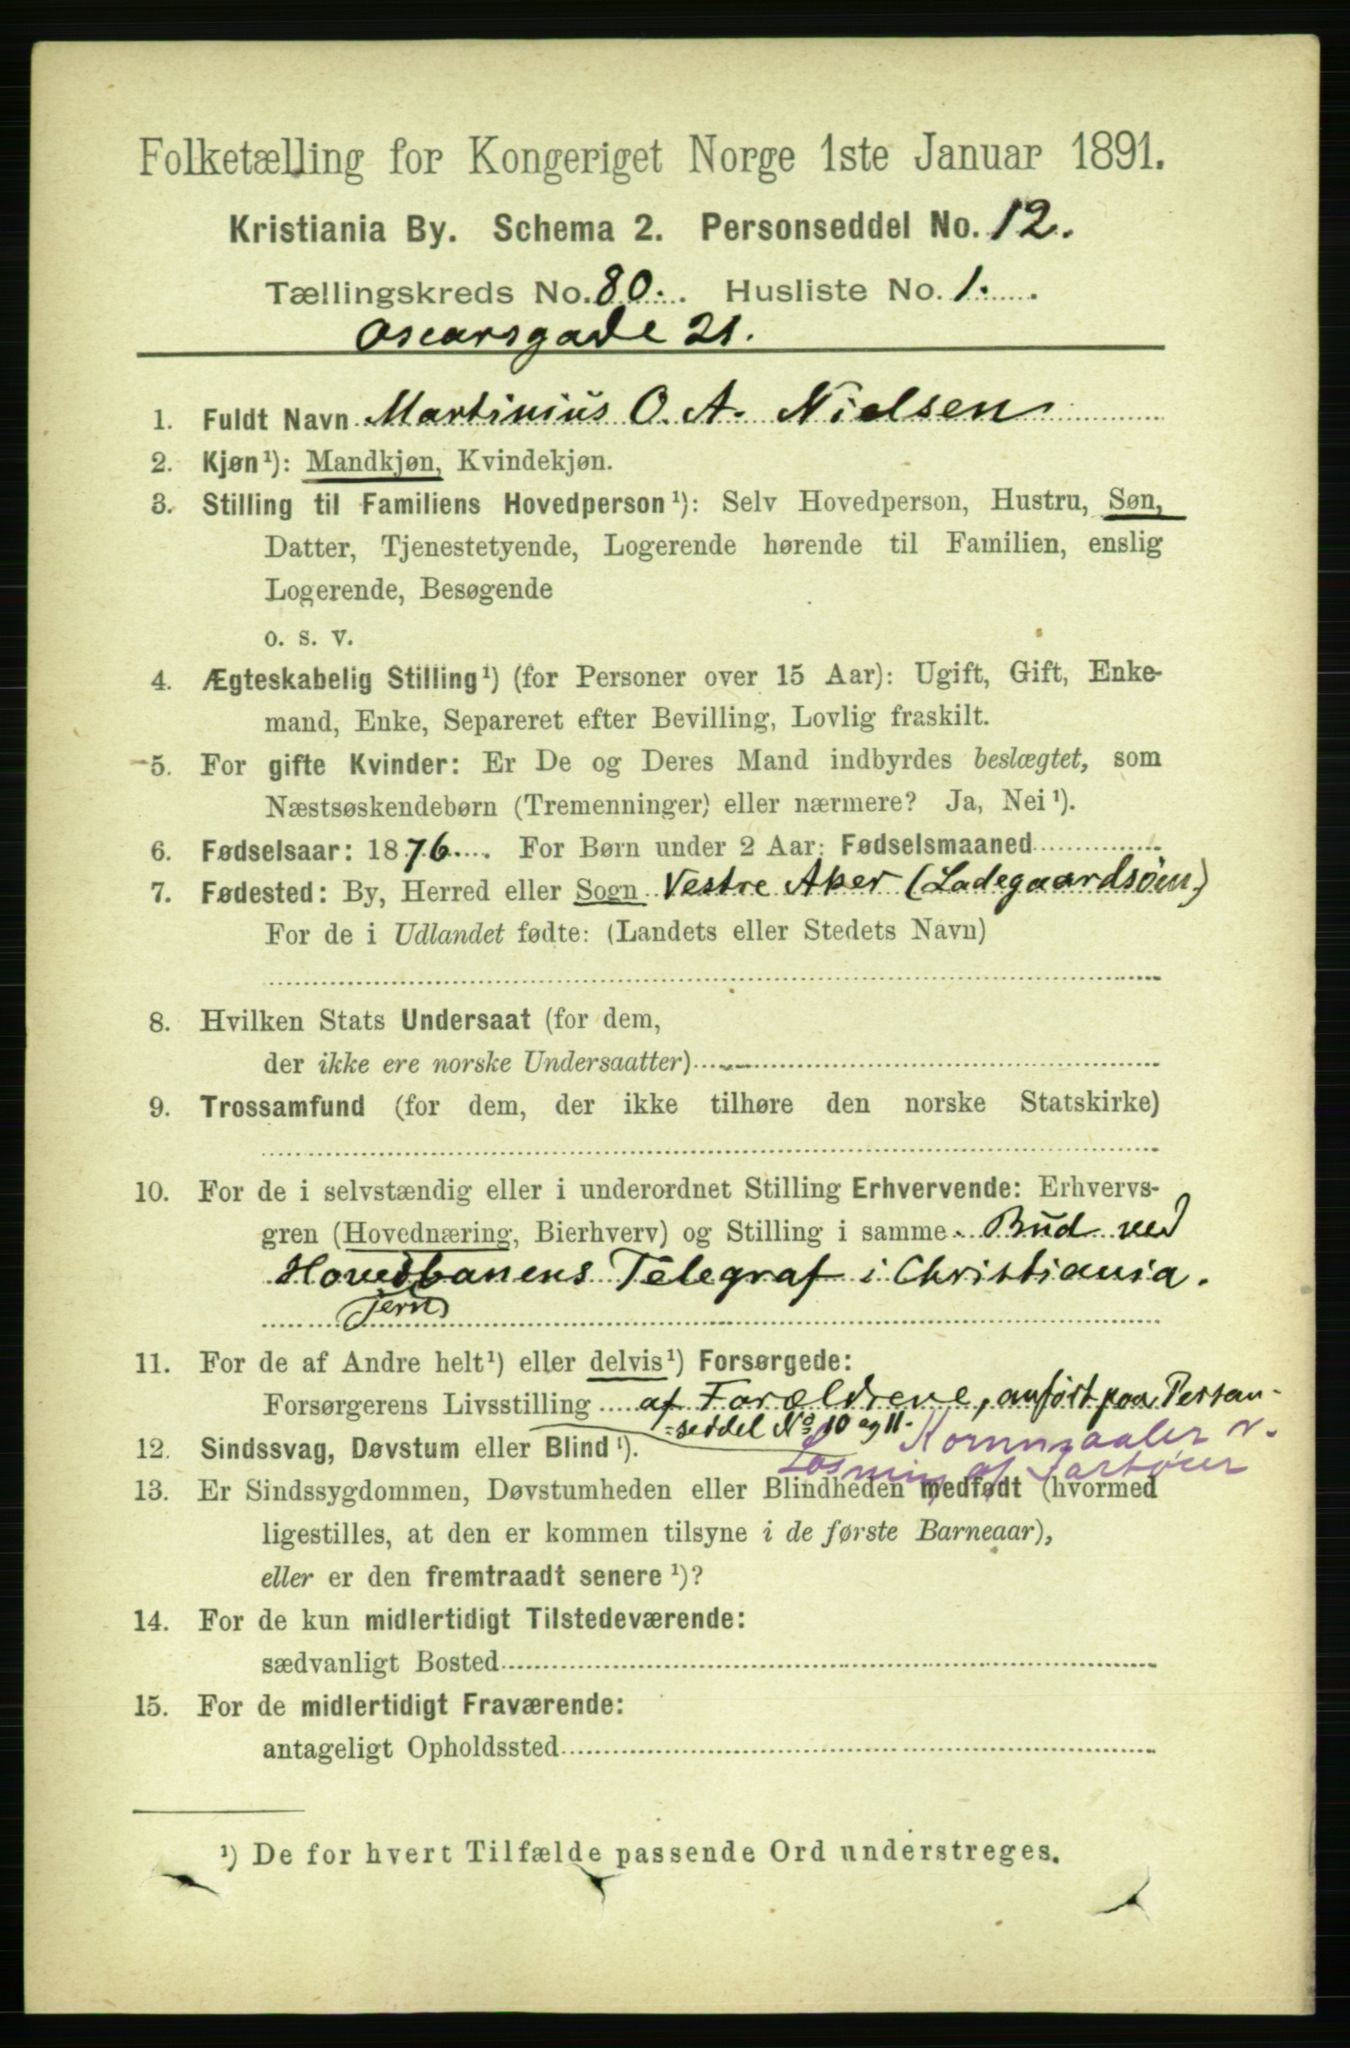 Folketælling for Kongeriget Norge 1ste Januar 1891.
Kristiania By. Schema 2. Personseddel No. 12.
Tællingskreds No. 80. Husliste No. 1.
Oscarsgade 21.
1. Fuldt Navn Martinius O. A. Nielsen
2. Kjøn¹): Mandkjøn, Kvindekjøn.
3. Stilling til Familiens Hovedperson¹): Selv Hovedperson, Hustru, Søn,
Datter, Tjenestetyende, Logerende hørende til Familien, enslig
Logerende, Besøgende
o. s. v.
4. Ægteskabelig Stilling¹) (for Personer over 15 Aar): Ugift, Gift, Enke-
mand, Enke, Separeret efter Bevilling, Lovlig fraskilt.
5. For gifte Kvinder: Er De og Deres Mand indbyrdes beslægtet, som
Næstsøskendebørn (Tremenninger) eller nærmere? Ja, Nei¹).
6. Fødselsaar: 1876. For Børn under 2 Aar: Fødselsmaaned
7. Fødested: By, Herred eller Sogn Vestre Aker (Ladegaardsøen)
For de i Udlandet fødte: (Landets eller Stedets Navn)
8. Hvilken Stats Undersaat (for dem,
der ikke ere norske Undersaatter)
9. Trossamfund (for dem, der ikke tilhøre den norske Statskirke)
10. For de i selvstændig eller i underordnet Stilling Erhvervende: Erhvervs-
gren (Hovednæring, Bierhverv) og Stilling i samme Bud ved
Hovedbanens Telegraf i Christiania.
Jern
11. For de af Andre helt¹) eller delvis¹) Forsørgede:
Forsørgerens Livsstilling af Forældrene, anført paa Person-
=seddel No 10 og 11.
Kornmaaler v.
12. Sindssvag, Døvstum eller Blind¹).
Losning af
13. Er Sindssygdommen, Døvstumheden eller Blindheden medfødt (hvormed
ligestilles, at den er kommen tilsyne i de første Barneaar),
eller er den fremtraadt senere¹)?
14. For de kun midlertidigt Tilstedeværende:
sædvanligt Bosted
15. For de midlertidigt Fraværende:
antageligt Opholdssted
¹) De for hvert Tilfælde passende Ord understreges.